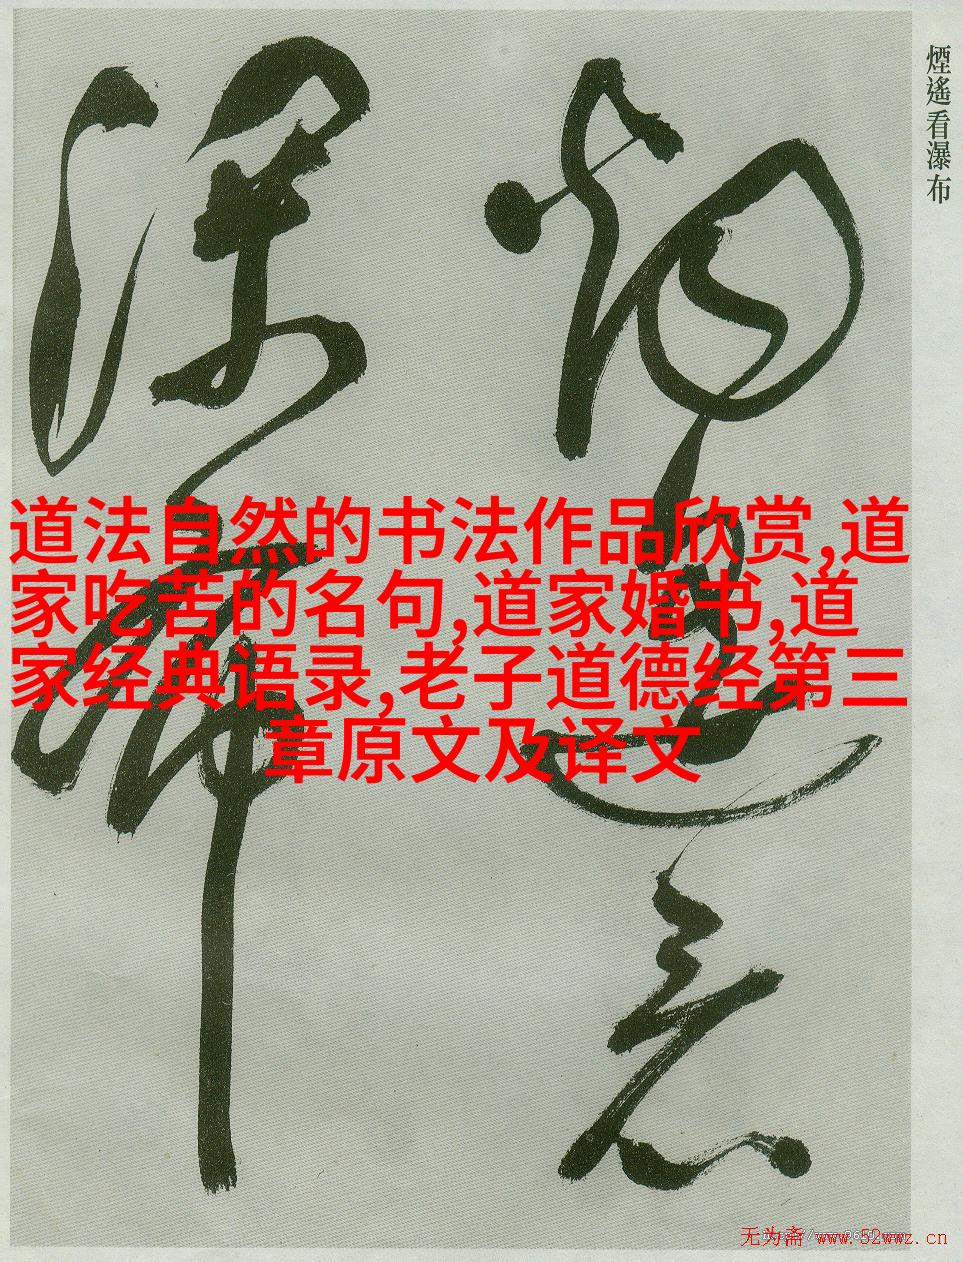 煙遙看瀑布
道法自然的书法作品欣赏,道
家吃苦的名句,道家婚书,道
家经典语录,老子道德经第三
章原文及译文
无为斋 www.52wwz.cn